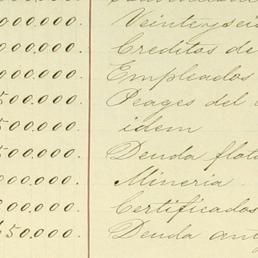 000.000. Veinteyseis
000.000. Creditos de
000.000. Empleados
500.000. Peages del
500.000. idem
500.000. Deuda flota
000.000. Mineria
000.000. Certificados
450.000. Deuda ant